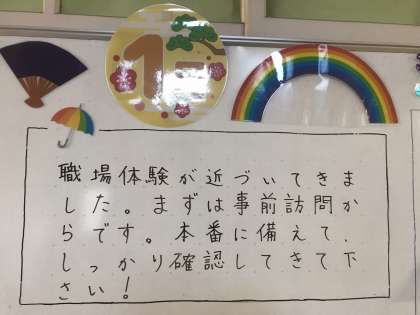 1月
職場体験が近づいてきま
した。まずは事前訪問か
らです。本番に備えて、
しっかり確認してきて下
さい！